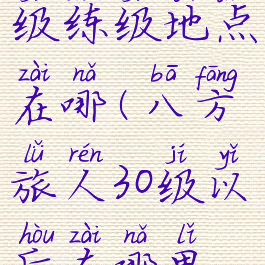 级练级地点
zài nǎ bā fāng
在哪(八方
lǚ rén jí yǐ
旅人30级以
hòu zài nǎ lǐ
后在哪里